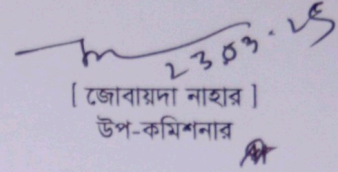 23.03.25
[ জোবায়দা নাহার ]
উপ-কমিশনার